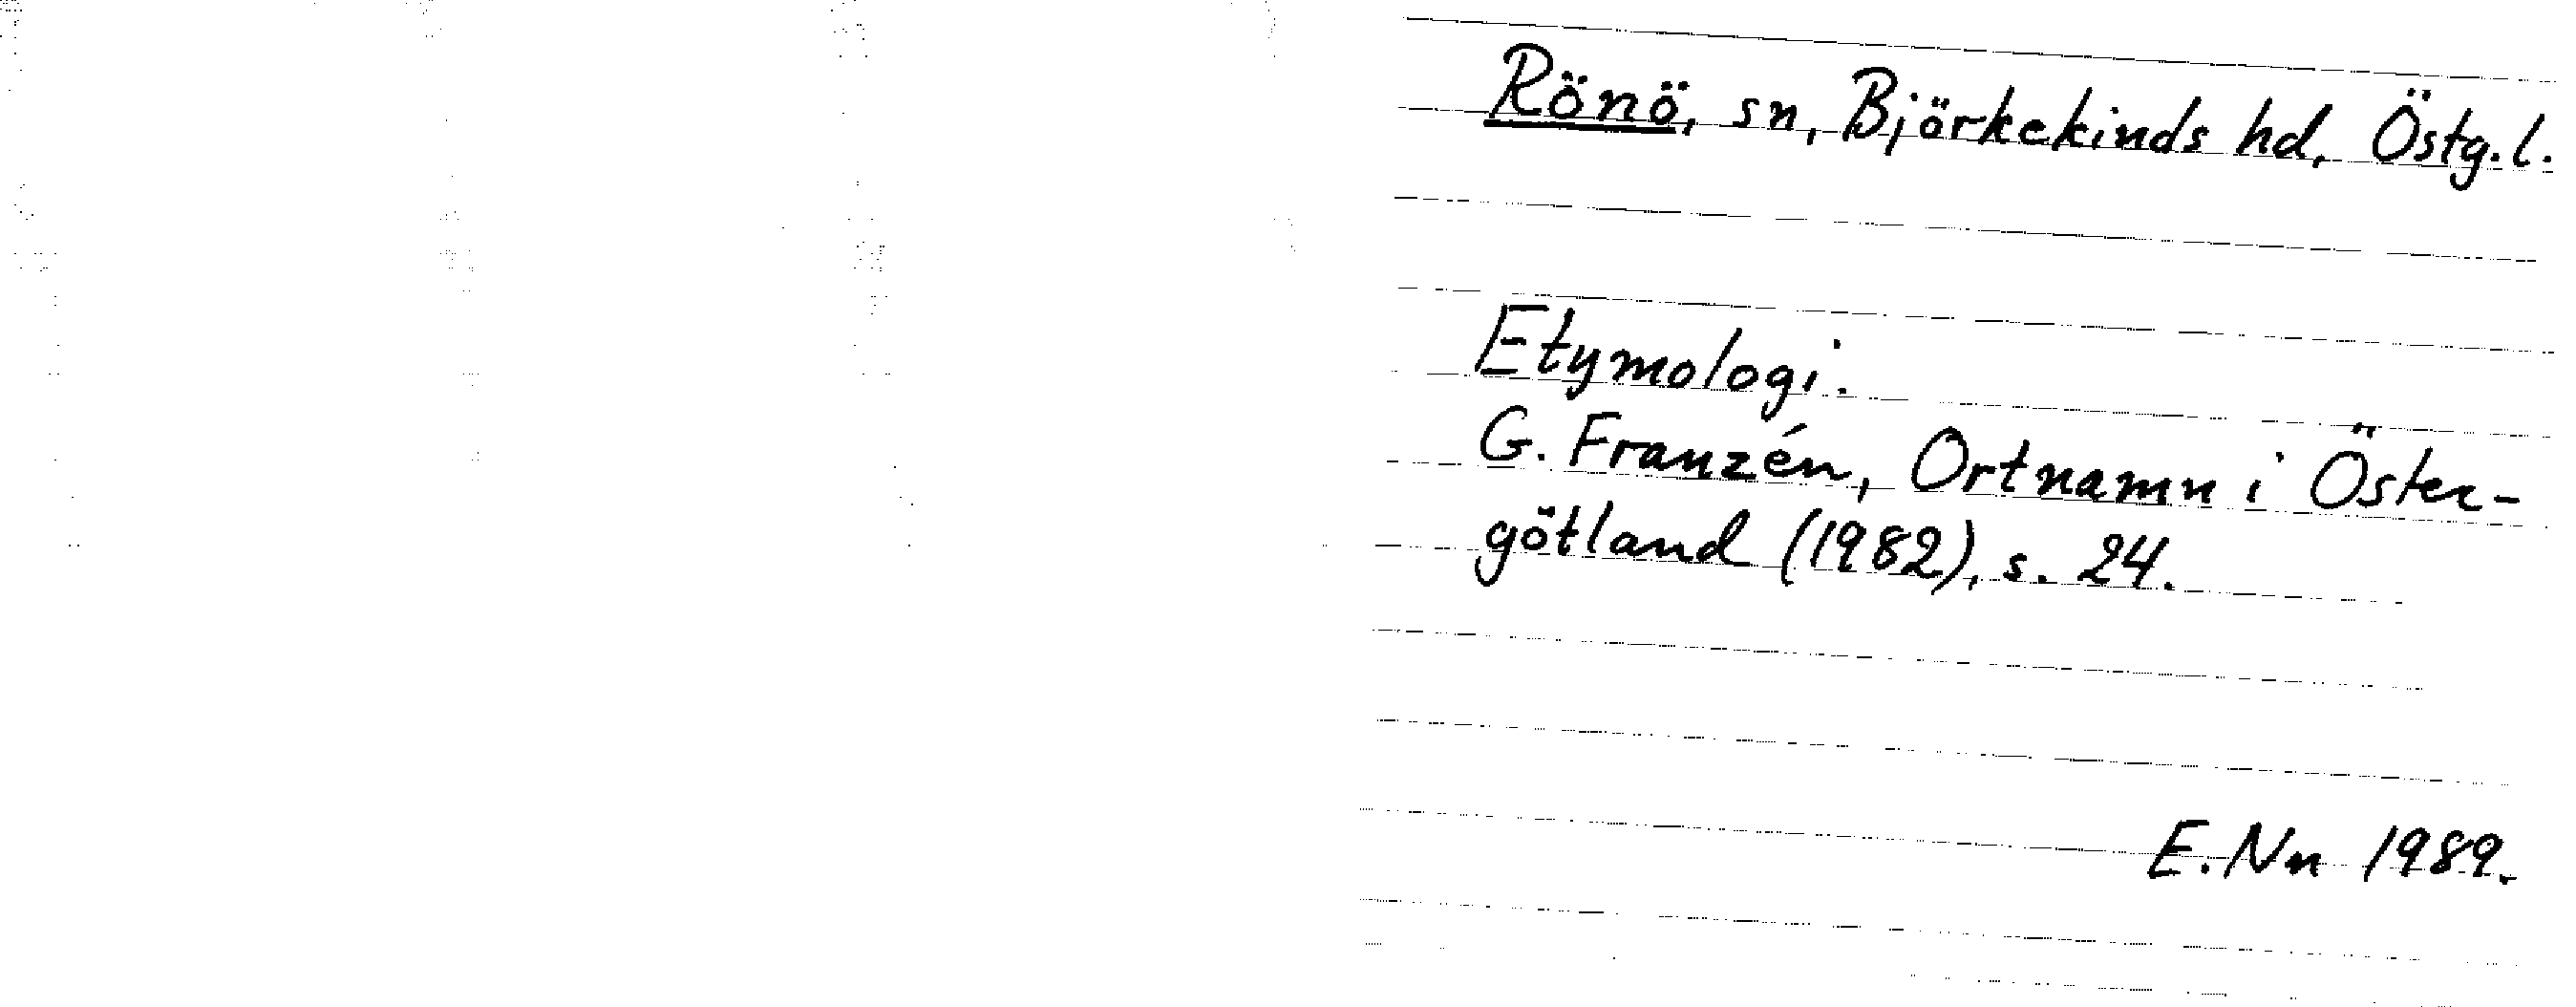 Rönö, sn, Björkekinds hd, Östg.l.
Etymologi.
G. Franzén, Ortnamn i Öster-
götland (1982), s. 24.
E.Nn 1989.